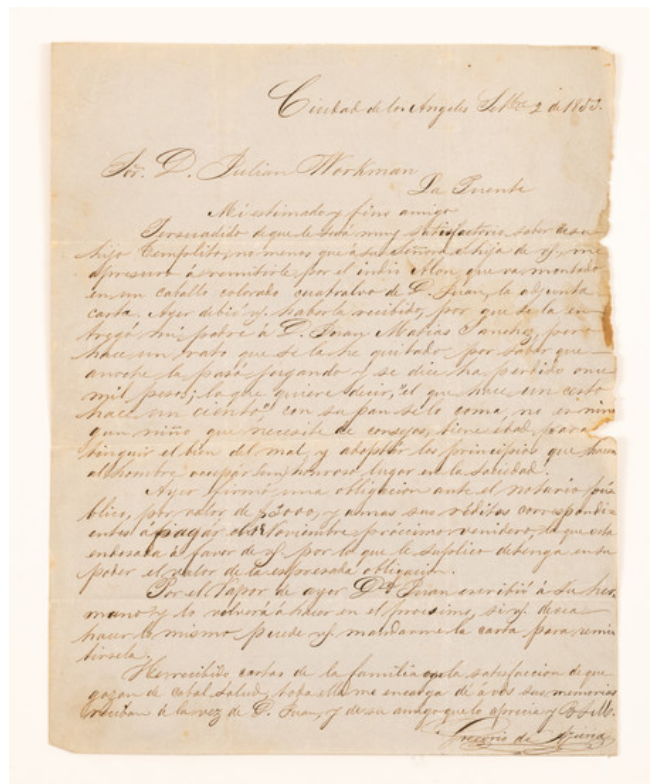 Ciudad de los Angeles Setbre 2 de 1853.
Sor. D. Julian Workman
La Puente
Mi estimado y fino amigo
Persuadido de que le será muy satisfactorio saber de su
hijo Templito, no menos que á su Señora é hija de V., me
apresuro á remitirle por el indio Alon que va montado
en un caballo colorado cuatralvo de D. Juan, la adjunta
carta. Ayer debió V. haberla recibido, por que se la en-
tregó mi padre á D. Juan Matias Sanchez, pero
hace un rato que se la he quitado por saber que
anoche la pasó jugando y se dice ha perdido once
mil pesos; lo que quiere decir, "el que hace un cesto
hace un ciento" con su pan se lo coma, no es nin-
gun niño que necesite de consejos, tiene edad para
tinguir el bien del mal, y adoptar los principios que hacen
al hombre ocupar un honroso lugar en la sociedad.
Ayer firmó una obligacion ante el notario pú-
blico, por valor de $3000, y a mas sus réditos correspondi-
entes á pagár el Noviembre procsimo venidero, la que está
endosada á favor de V. por lo que le suplico detenga en su
poder el valor de la espresada obligacion.
Por el Vapor de ayer Dn Juan escribió á su her-
mano y lo volverá á hacer en el procsimo, si V. desea
hacer lo mismo puede V. mandarme la carta para remi-
tirsela.
He recibido cartas de la familia con la satisfaccion de que
gozan de cabal salud, toda ella me encarga dé á vos sus memorias
reciban á la vez de D. Juan, y de su amigo que lo aprecia y B.S.M.
Gregorio de